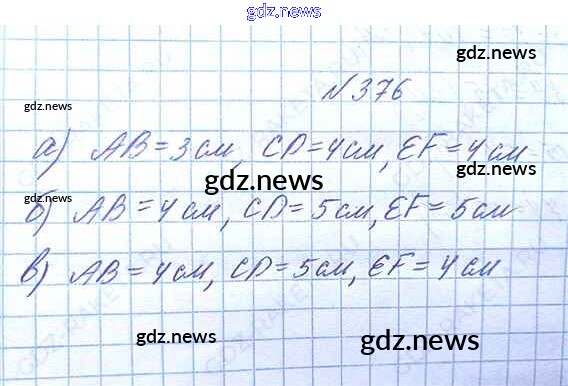 gdz.news
gdz.news
№ 376
gdz.news
а) AB = 3 см, CD = 4 см, EF = 4 см
gdz.news
gdz.news
gdz.news
б) AB = 4 см, CD = 5 см, EF = 5 см
в) AB = 4 см, CD = 5 см, EF = 4 см
gdz.news
gdz.news